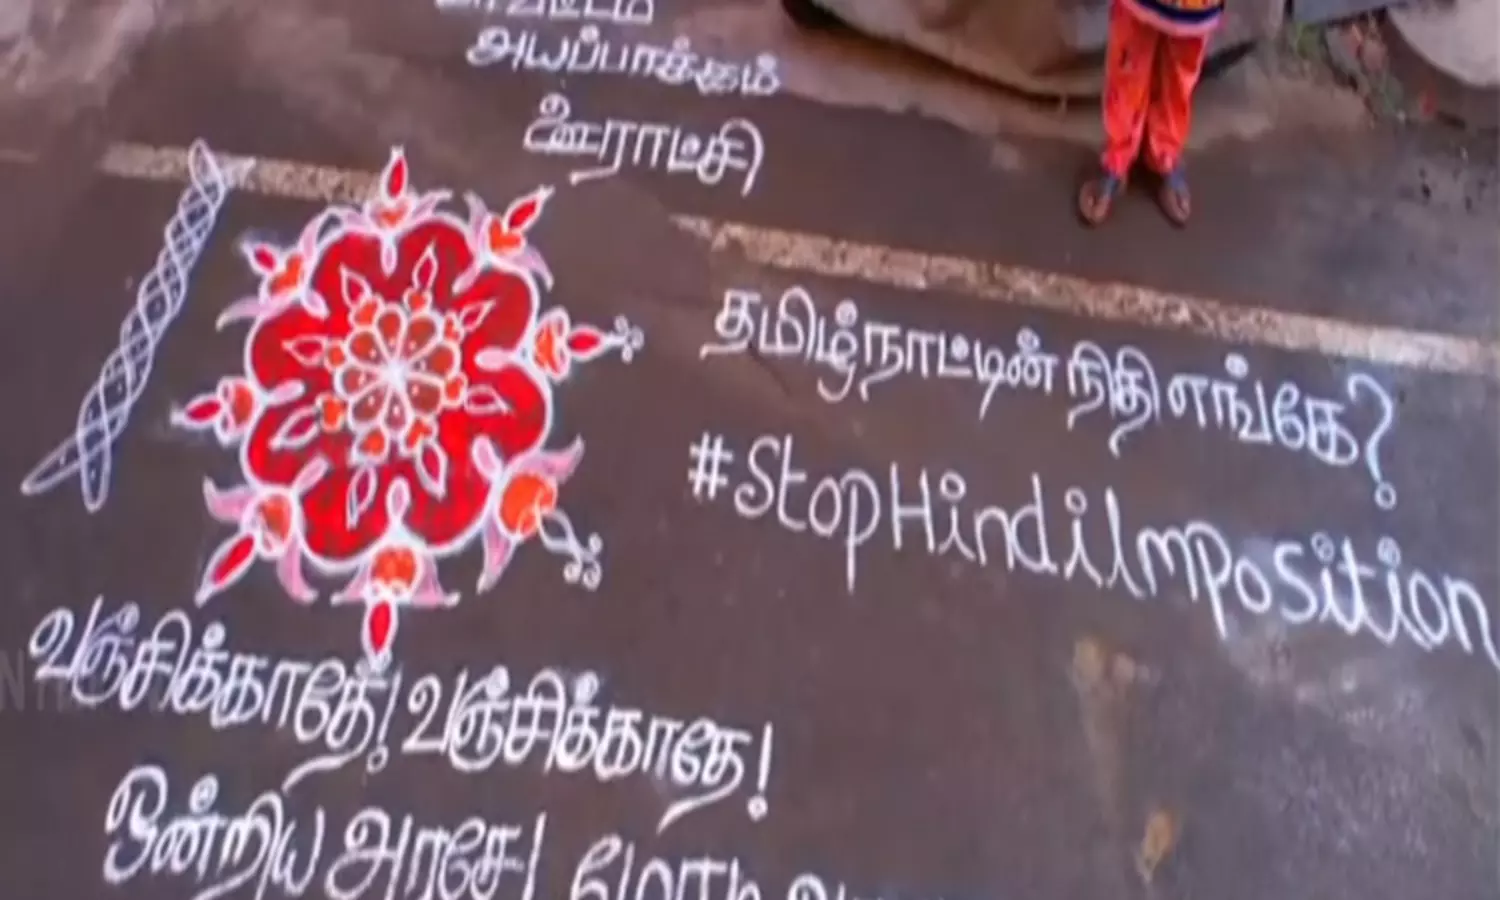 மாவட்டம்
அயப்பாக்கம்
ஊராட்சி)
தமிழ்நாட்டின் நிதி எங்கே?
#StopHindiImposition
வஞ்சிக்காதே! வஞ்சிக்காதே!
ஒன்றிய அரசே! மோடி